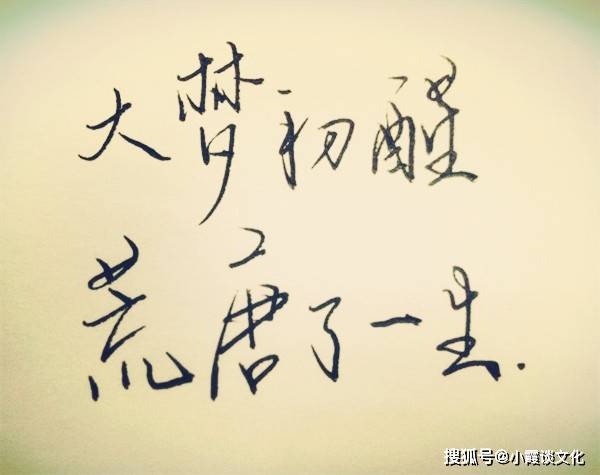 大梦初醒
荒唐了一生.
搜狐号@小霞谈文化